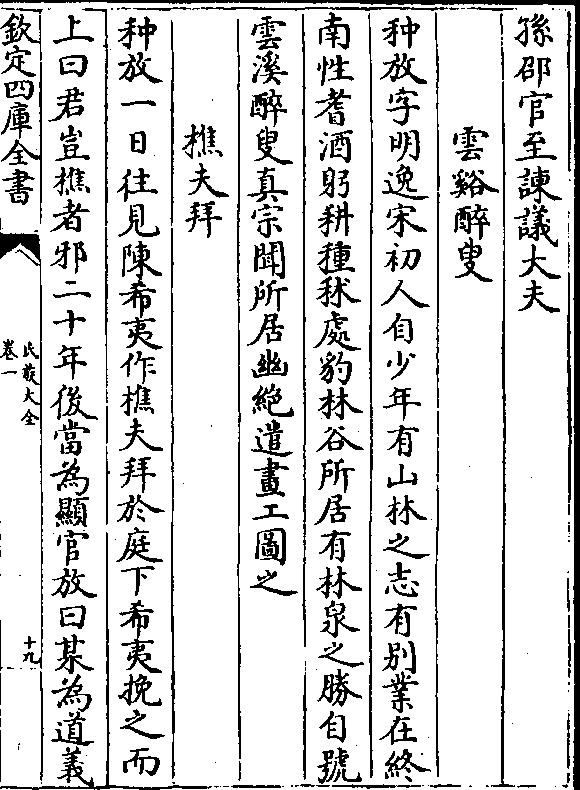 孫邵官至諫議大夫
雲谿醉叟
种放字明逸宋初人自少年有山林之志有别業在終
南性耆酒躬耕種秫處豹林谷所居有林泉之勝自號
雲溪醉叟真宗聞所居幽絶遣畫工圖之
樵夫拜
种放一日往見陳希夷作樵夫拜於庭下希夷挽之而
上曰君豈樵者邪二十年後當為顯官放曰某為道義
欽定四庫全書
氏族大全
卷一
十九